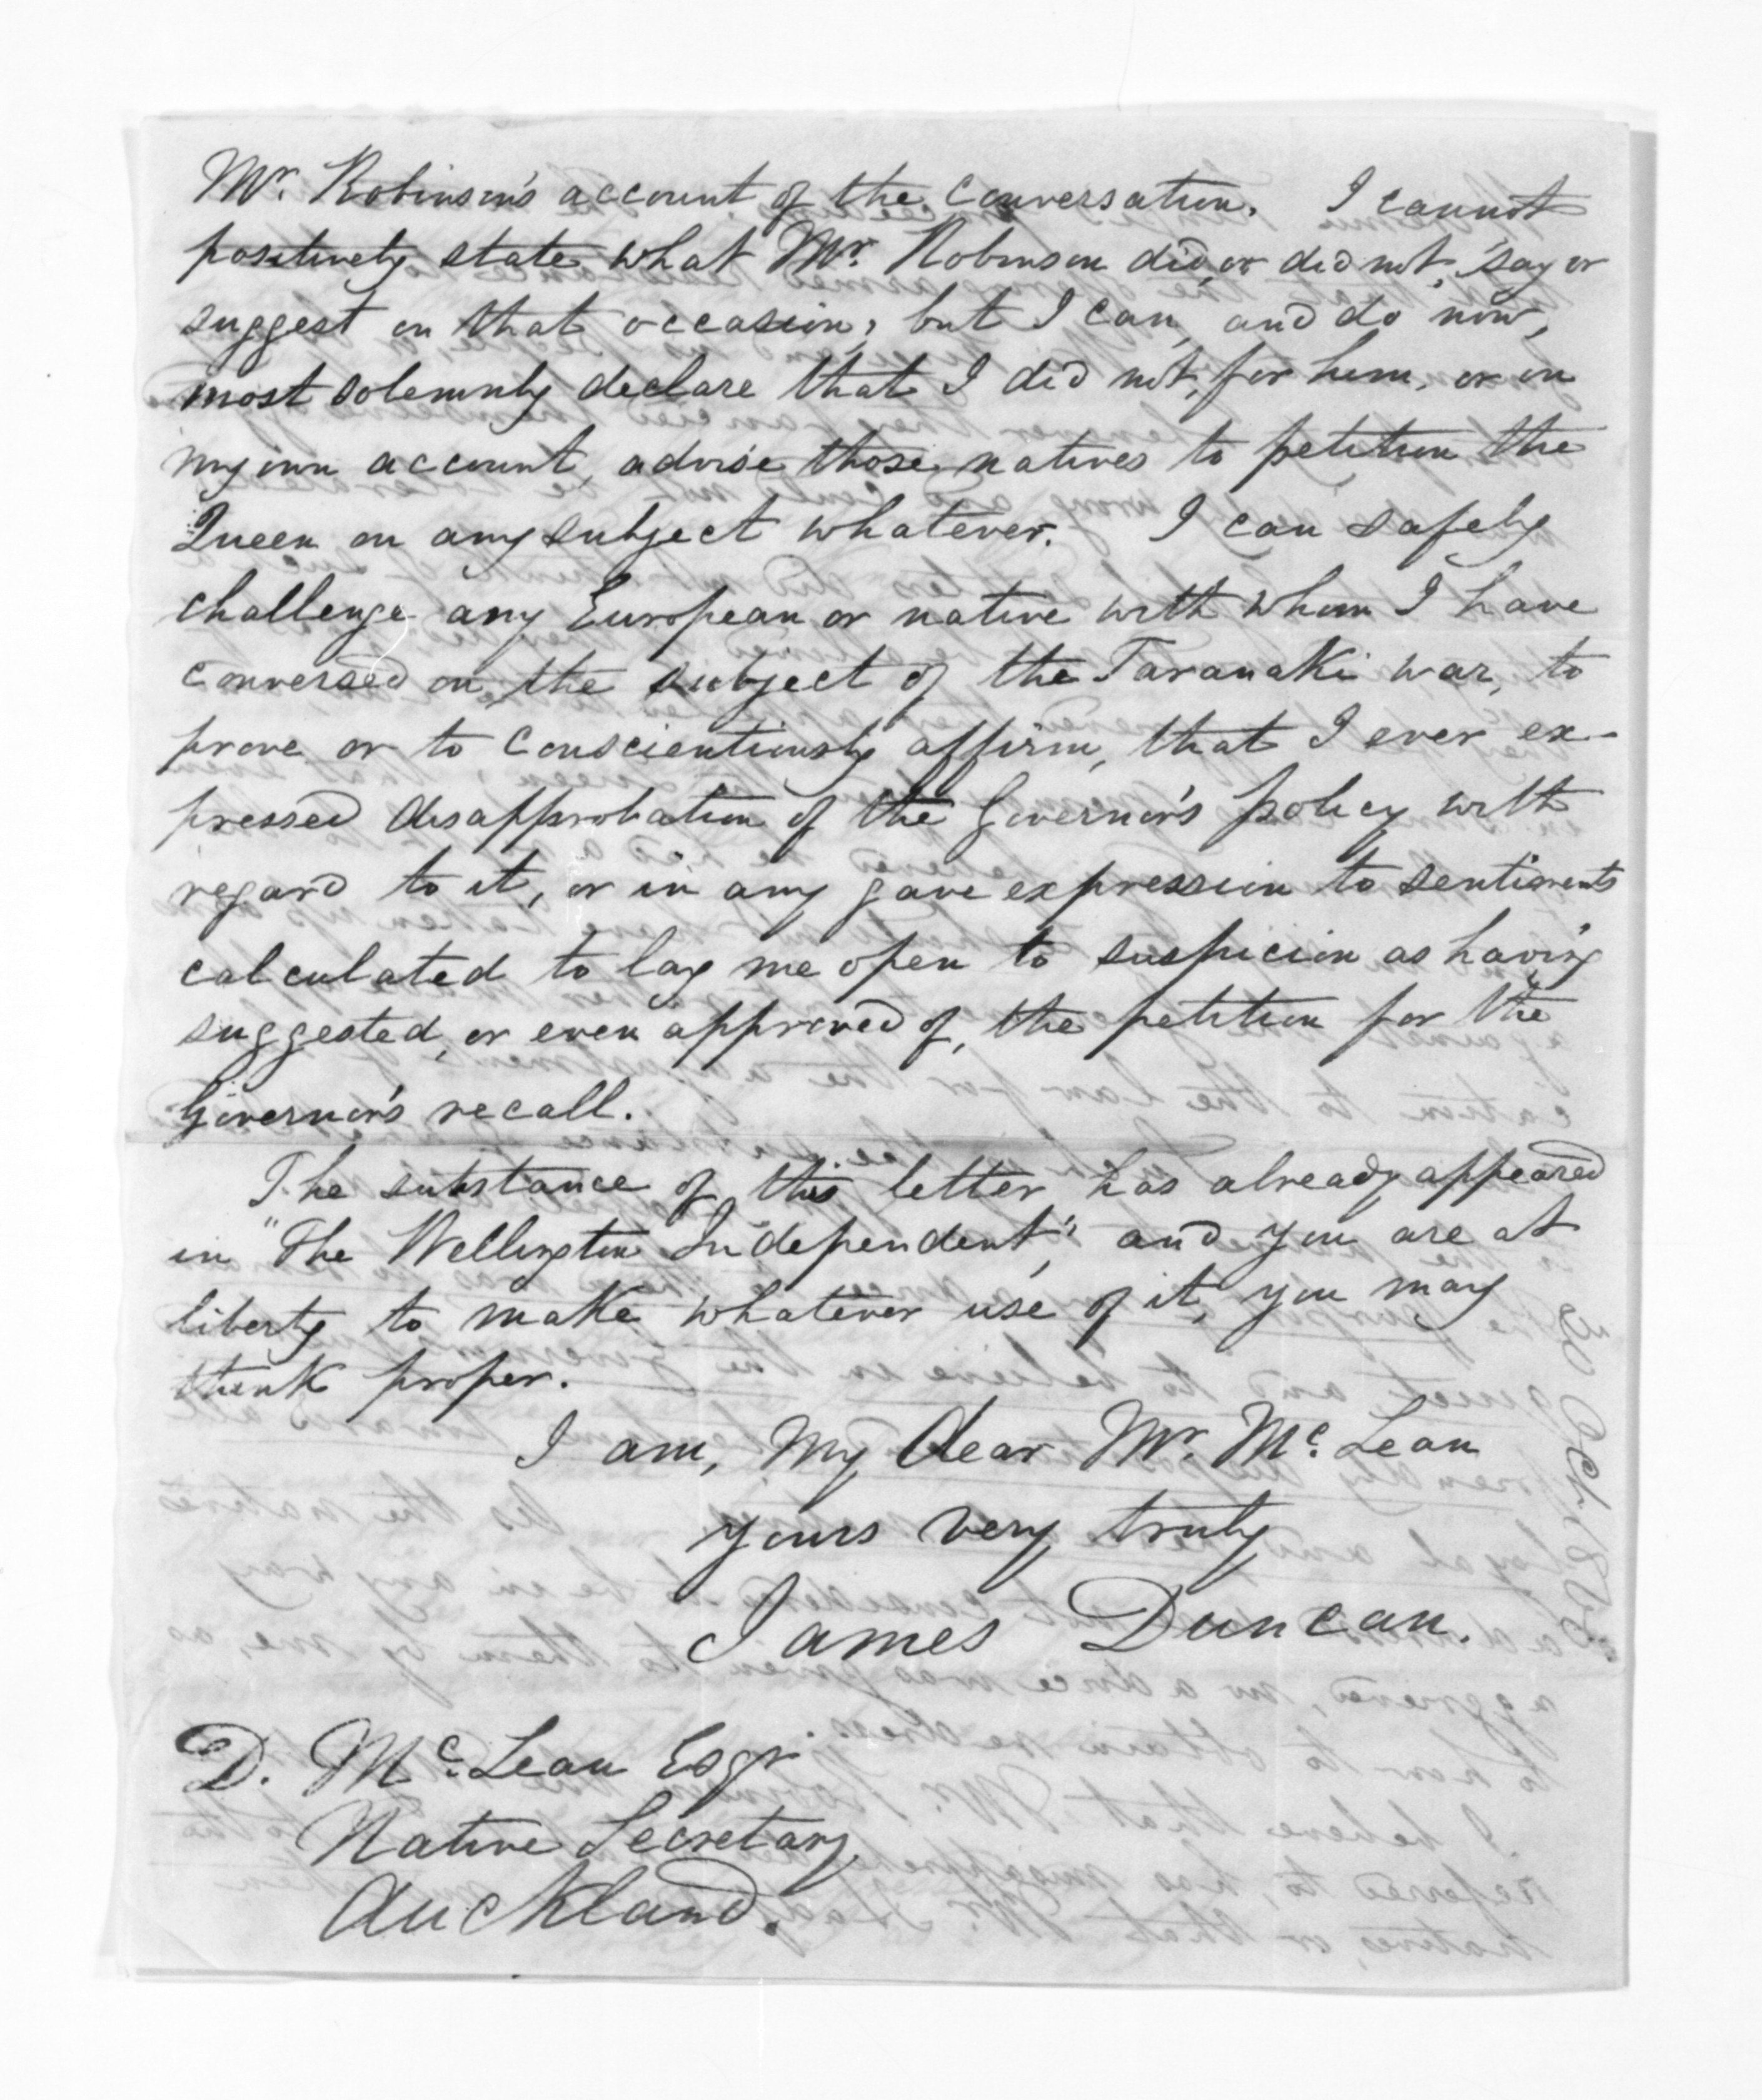 Mr. Robinson's account of the conversation. I cannot
positively state what Mr. Robinson did, or did not, say or
suggest on that occasion, but I can, and do now,
most solemnly declare that I did not, for him, or on
my own account, advise those natives to petition the
Queen on any subject whatever. I can safely
challenge any European or native with whom I have
conversed on the subject of the Taranaki war, to
prove or to conscientiously affirm, that I ever ex-
pressed disapprobation of the Governor's policy with
regard to it, or in any gave expression to sentiments
calculated to lay me open to suspicion as having
suggested, or even approved of, the petition for the
Governor's recall.
The substance of this letter has already appeared
in "The Wellington Independent", and you are at
liberty to make whatever use of it, you may
think proper.
I am, My dear Mr. Mc. Lean
yours very truly
James Duncan.
D. Mc. Lean Esqr
Native Secretary
Auckland.